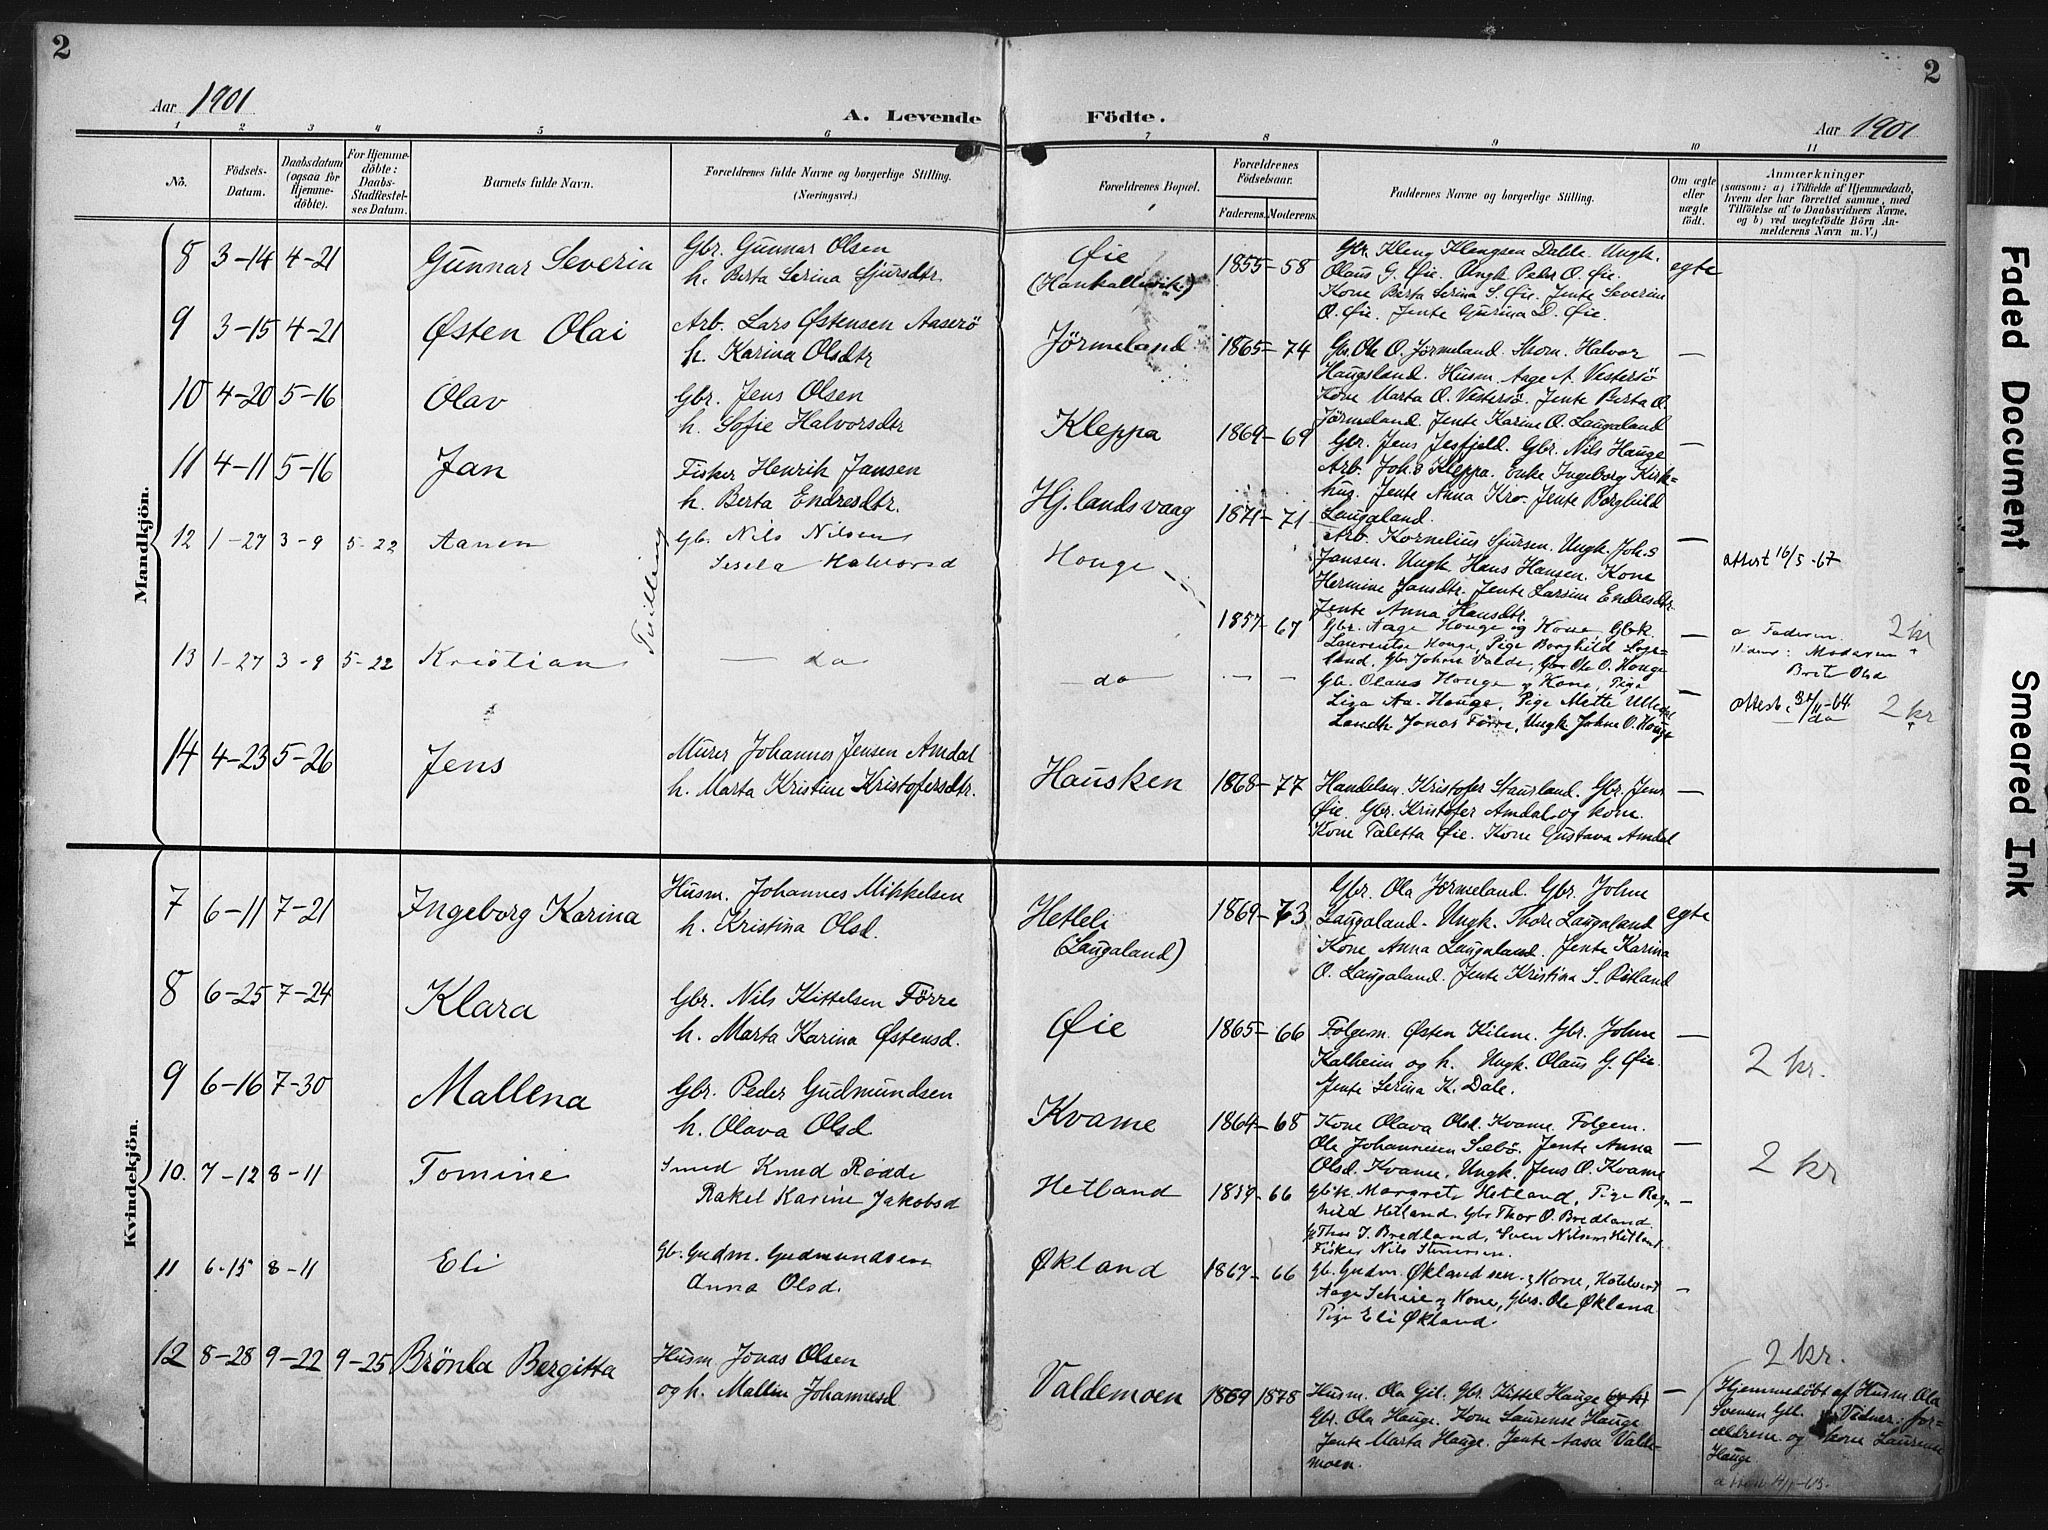 2
2
Aar 1901
A. Levende
Födte.
Aar 1901
1 2 3 4 5 6 7 8 9 10 11
No.
Födsels-Datum.
Daabsdatum (ogsaa for Hjemme-döbte).
For Hjemme-döbte: Daabs-Stadfæstel-ses Datum.
Barnets fulde Navn.
Forældrenes fulde Navne og borgerlige Stilling.
(Næringsvei.)
Forældrenes Bopæl.
Forældrenes Födselsaar.
Faderens. Moderens.
Faddernes Navne og borgerlige Stilling.
Om ægte eller uægte födt.
Anmærkninger
(saasom: a) i Tilfælde af Hjemmedaab,
hvem der har forrettet samme, med
Tilföielse af to Daabsvidners Navne,
og b) ved uægtefödte Börn An-
melderens Navn m. V.)
Mandkjön.
8 3-14 4-21 Gunnar Severin
Gbr. Gunnar Olsen
h. Berta Serina Sjursdtr.
Øie
1855-58
Gbr. Kleng Klengsen Dalde. Ungk.
Olaus G. Øie. Ungk. Peder O. Øie.
Kone Berta Serina S. Øie. Jente Severine
O. Øie. Jente Gurina D. Øie.
egte
9 3-15 4-21 Østen Olai
Arb. Lars Østensen Aaserö
h. Karina Olsdtr
Jörmeland
1865-74
Gbr. Ole O. Jörmeland. Skom. Halvor
Haugsland. Husm. Aage A. Vestersö
Kone Marta O. Vestersö. Jente Berta O.
Jörmeland. Jente Karine O. Laugaland
—
10 4-20 5-16 Olav
Gbr. Jens Olsen
h. Sofie Halvorsdtr
Kleppa
1869-69
Gbr. Jens Jesfjeld. Gbr. Nils Hauge
Arb. Joh.s Kleppa. Enke Ingeborg Kirk-
hug. Jente Anna Kro. Jente Borghild
Laugaland.
—
11 4-11 5-16 Jan
Fisker Henrik Jansen
h. Berta Endresdtr.
Hj.landsvaag
1871-71
Arb. Kornelius Sjursen. Ungk. Joh.s
Jansen. Ungk. Hans Hansen. Kone
Hermine Jansdtr. Jente Larsine Endresdtr.
Jente Anna Hansdtr.
—
12 1-27 3-9 5-22 Aanen
Tvilling
Gb. Nils Nilsen
Sesela Halvorsd
Houge
1857-67
Gbr. Aage Houge og Kone, Gbk.
Laurentse Houge, Pige Borghild Loge-
land. Gbr. Johne Valde, Gbr. Ole O. Houge
—
attest 16/5-67
a Faderen. 2 kr
Vidner: Moderen
Brite Olsd
13 1-27 3-9 5-22 Kristian
— do
— do
— —
Gb. Olaus Houge og Kone, Pige
Liza Aa. Houge, Pige Mette
Landh. Jonas Förre, Ungk. Johne O. Houge
—
attest
— do 2 kr
14 4-23 5-26 Jens
Murer Johannes Jensen Amdal
h. Marta Kristine Kristofersdtr.
Hausken
1868-77
Handelsm. Kristofer Staurland. Gbr. Jens
Øie. Gbr. Kristofer Amdal og kone.
Kone Taletta Øie. Kone Gustava Amdal
—
Kvindekjön.
7 6-11 7-21 Ingeborg Karina
Husm. Johannes Mikkelsen
h. Kristina Olsd.
Hetleli
(Laugaland)
1869-73
Gbr. Ola Jörmeland. Gbr. Johne
Laugaland. Ungk. Thore Laugaland
Kone Anna Laugaland. Jente Karina
O. Laugaland. Jente Kristina S. Østland
egte
8 6-25 7-24 Klara
Gbr. Nils Kittelsen Förre
h. Marta Karina Østensd.
Øie
1865-66
Folgem. Østen Kilene. Gbr. Johne
Kalheim og h. Ungk. Olaus G. Øie.
Jente Serina K. Dale.
—
2 kr.
9 6-16 7-30 Mallena
Gbr. Peder Gudmundsen
h. Olava Olsd
Kvame
1864-68
Kone Olava Olsd. Kvame. Folgem.
Ole Johannesen Sæbö. Jente Anna
Olsd. Kvame. Ungk. Jens O. Kvame
—
2 kr
10. 7-12 8-11 Tomine
Smed Knud Rødde
Rakel Karine Jakobsd
Hetland
1859-66
Gbk. Margrete Hetland, Pige Rag-
nild Hetland. Gbr. Thor O. Bredland
Thor J. Bredland, Sven Nilsen Hetland
Fisker Nils Stenersen.
—
11 6-15 8-11 Eli
Gb. Gudm. Gudmundsen
Anna Olsd.
Økland
1867-66
Gb. Gudm. Økland sen. og Kone,
Aage Scheie og Kone, Gbr. Ole Økland
Pige Eli Økland.
—
12 8-28 9-22 9-25 Brönla Bergitta
Husm. Jonas Olsen
og h. Mallin Johannesd
Valdemoen
1869 1878
Husm. Ola Gil. Gbr. Kittel Hauge
Gbr. Ola Hauge. Kone Laurense Hauge
Jente Marta Hauge. Jente Aasa Valde-
moen.
—
2 kr.
Hjemmedöbt af Husm. Ola
Svensen Gil. Vidner: for-
ældrene og kone Laurense
Hauge
Faded Document
Smeared Ink